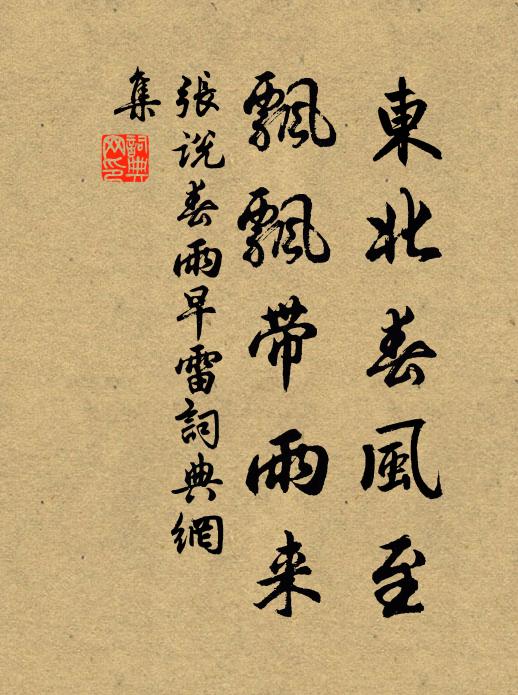 東北春風至
飄飄帶雨来
張說春雨早雷詞典網
集
詞典
网印